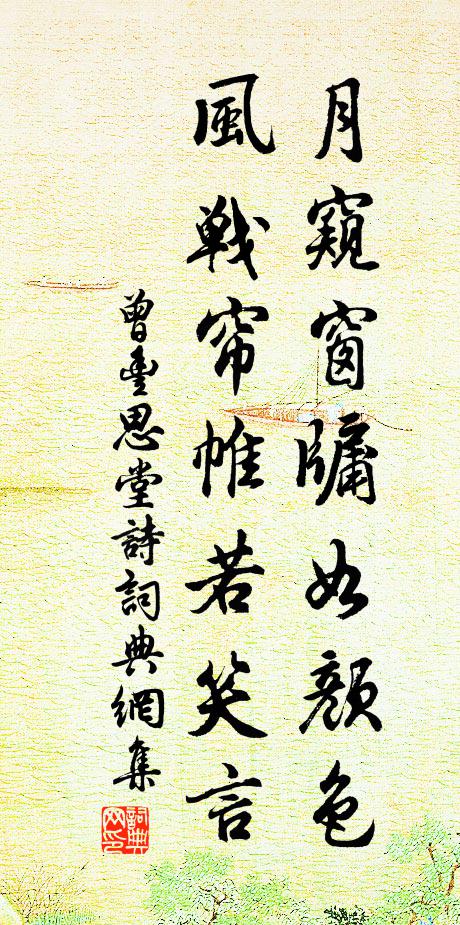 月窺窗牖如顏色
風戰帘帷若笑言
曾豐思堂詩詞典網集
詞典網印